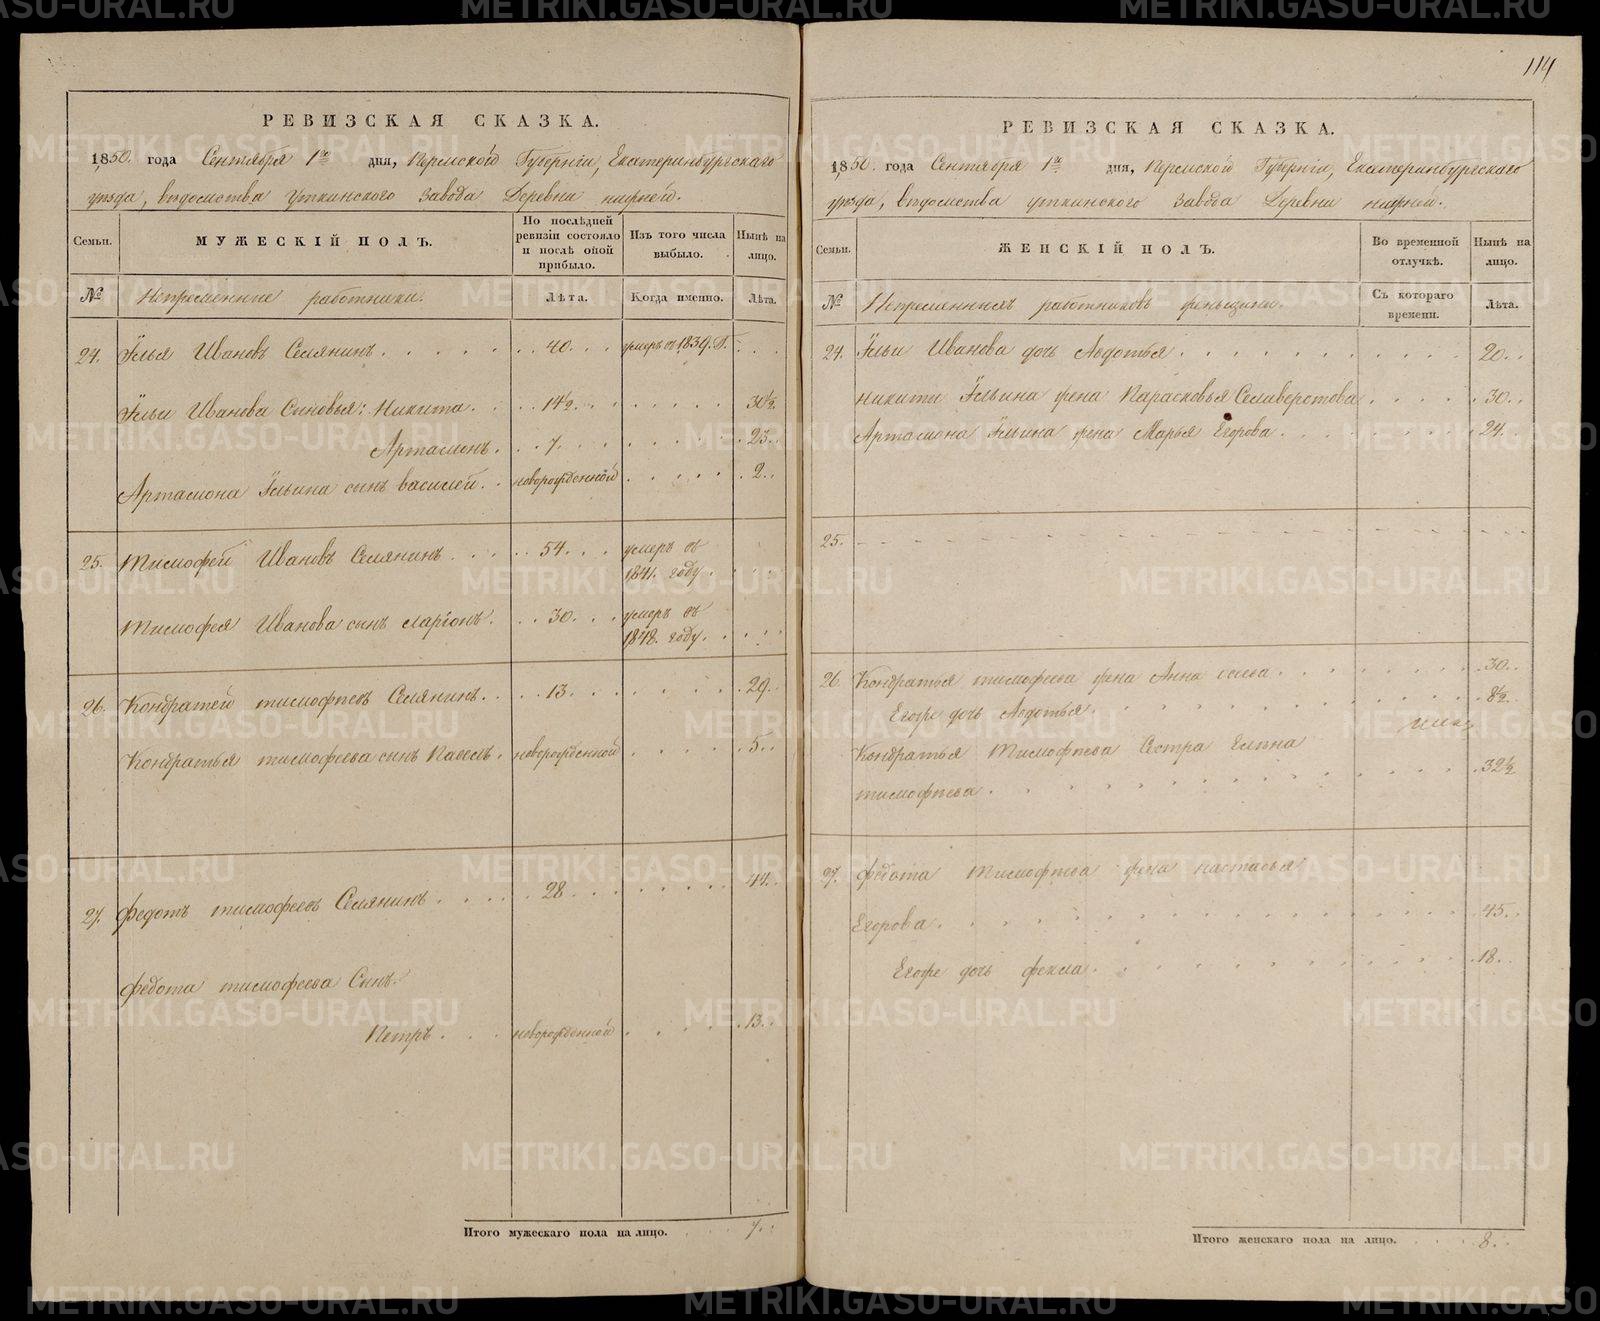 114
РЕВИЗСКАЯ СКАЗКА.
1850. года Сентября 1го дня, Пермской Губерніи, Екатеринбургскаго
уѣзда, вѣдомства Уткинского Завода Деревни нижней.
Семьи.
МУЖЕСКІЙ ПОЛЪ.
По послѣдней ревизіи состояло и послѣ оной прибыло.
Изъ того числа выбыло.
Нынѣ на лицо.
№ Непременные работники.
Лѣта.
Когда именно.
Лѣта.
24. Илья Ивановъ Селянинъ. 40. умеръ въ 1839. г.
Ильи Иванова Сыновья: Никита. 14½. 30½
Артамонъ. 7. 23.
Артамона Ильина сынъ василей. новорожденной 2.
25. Тимофей Ивановъ Селянинъ 54. умеръ въ
1841. году.
Тимофея Иванова сынъ Ларіонъ. 30. умеръ въ
1848. году.
26. Кондратей тимофѣевъ Селянинъ. 13. 29.
Кондратья тимофеева сынъ Павелъ. новорожденной 5.
27. Федотъ тимофеевъ Селянинъ. 28. 44.
Федота тимофеева Сынъ
Петръ. новорожденной 13.
Итого мужескаго пола на лицо. 7.
РЕВИЗСКАЯ СКАЗКА.
1850. года Сентября 1го дня, Пермской Губерніи, Екатеринбургскаго
уѣзда, вѣдомства уткинского Завода Деревни нижней.
Семьи.
ЖЕНСКІЙ ПОЛЪ.
Во временной отлучкѣ.
Нынѣ на лицо.
№ Непременныхъ работниковъ женщины.
Съ котораго времени.
Лѣта.
24. Ильи Иванова дочь Авдотья. 20.
никиты Ильина жена Парасковья Селиверстова 30.
Артамона Ильина жена Марья Егорова. 24.
25.
26. Кондратья тимофеева жена Анна 30.
Егоже дочь Авдотья. 8½
Кондратья Тимофѣева Сестра Елина
тимофѣева. 32½
27. Федота Тимофѣева жена настасья
Егорова. 45.
Егоже дочь фекла. 18.
Итого женскаго пола на лицо. 8.
METRIKI.GASO-URAL.RU